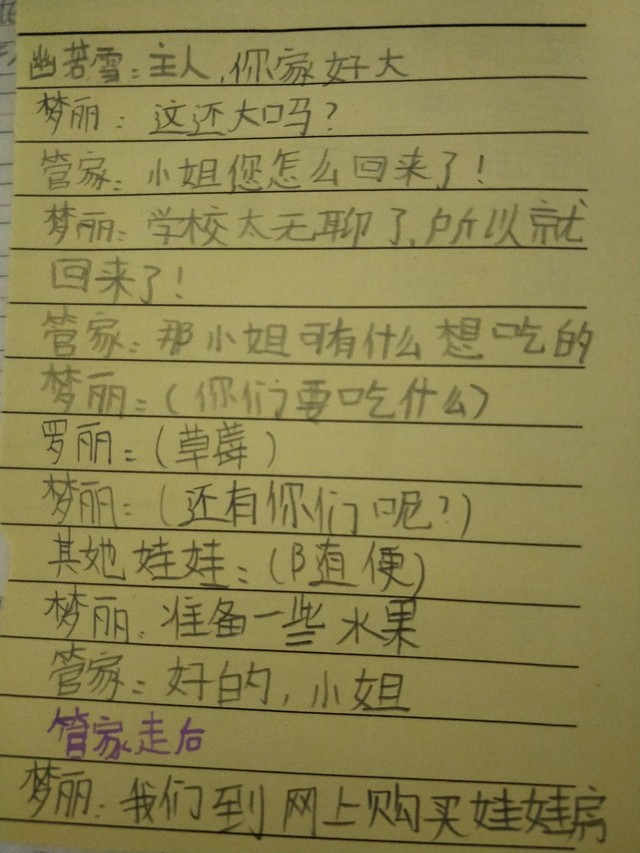 幽若雪：主人，你家好大
梦丽：这还大吗？
管家：小姐您怎么回来了！
梦丽：学校太无聊了，所以就
回来了！
管家：那小姐可有什么想吃的
梦丽：（你们要吃什么）
罗丽：（草莓）
梦丽：（还有你们呢？）
其她娃娃：（随便）
梦丽：准备一些水果
管家：好的，小姐
管家走后
梦丽：我们到网上购买娃娃房